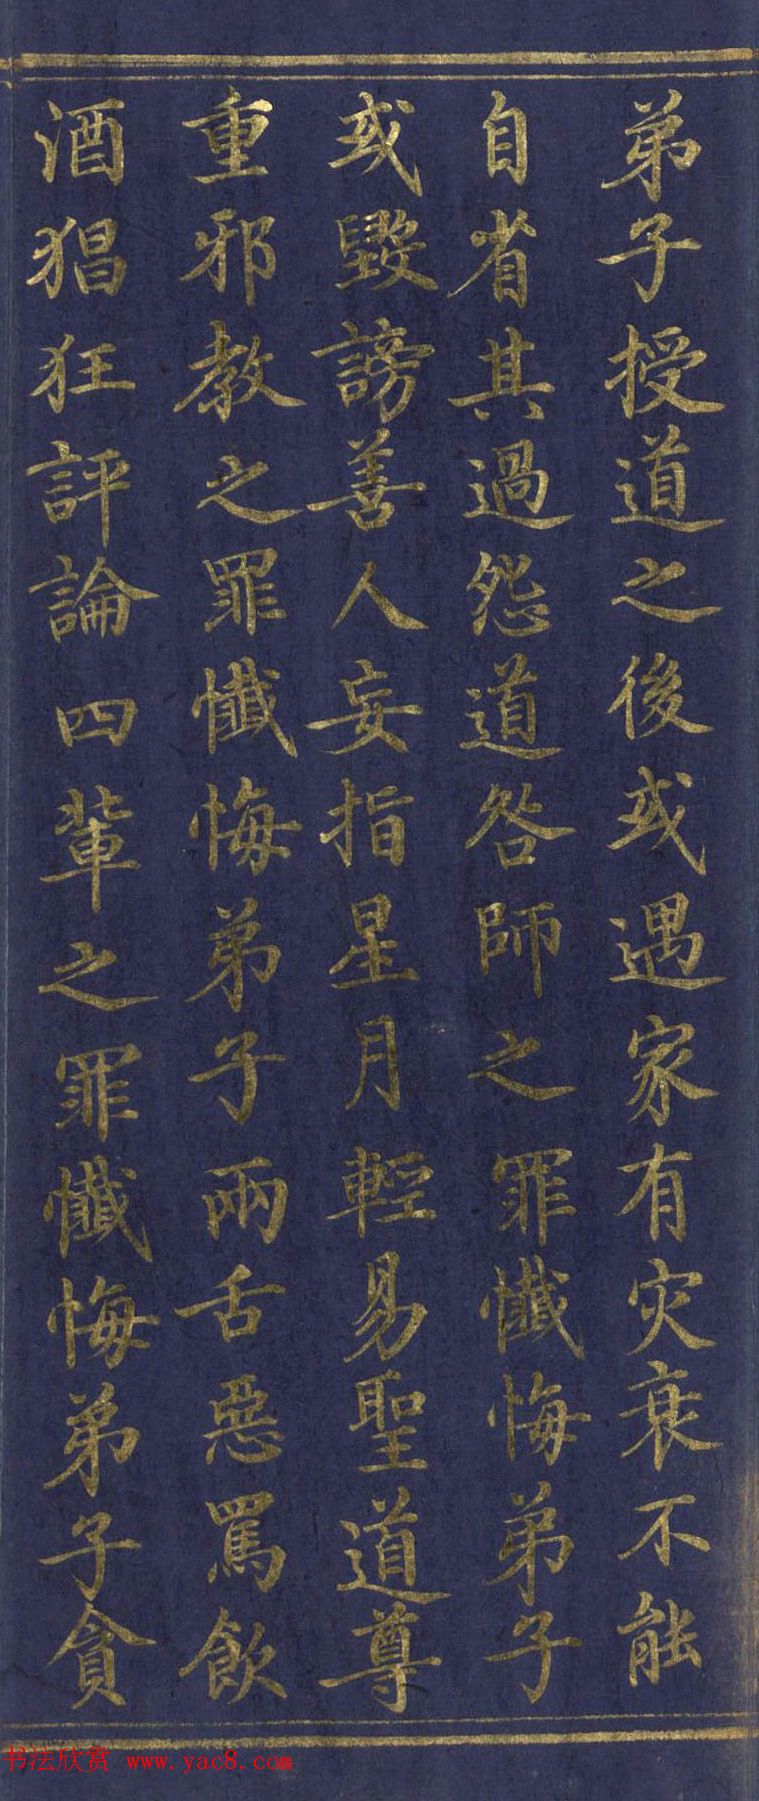 弟子授道之後或遇家有灾衰不能
自省其過怨道咎師之罪懺悔弟子
或毀謗善人妄指星月輕易聖道尊
重邪教之罪懺悔弟子兩舌惡罵飲
酒猖狂評論四輩之罪懺悔弟子貪
书法欣赏 www.yac8.com